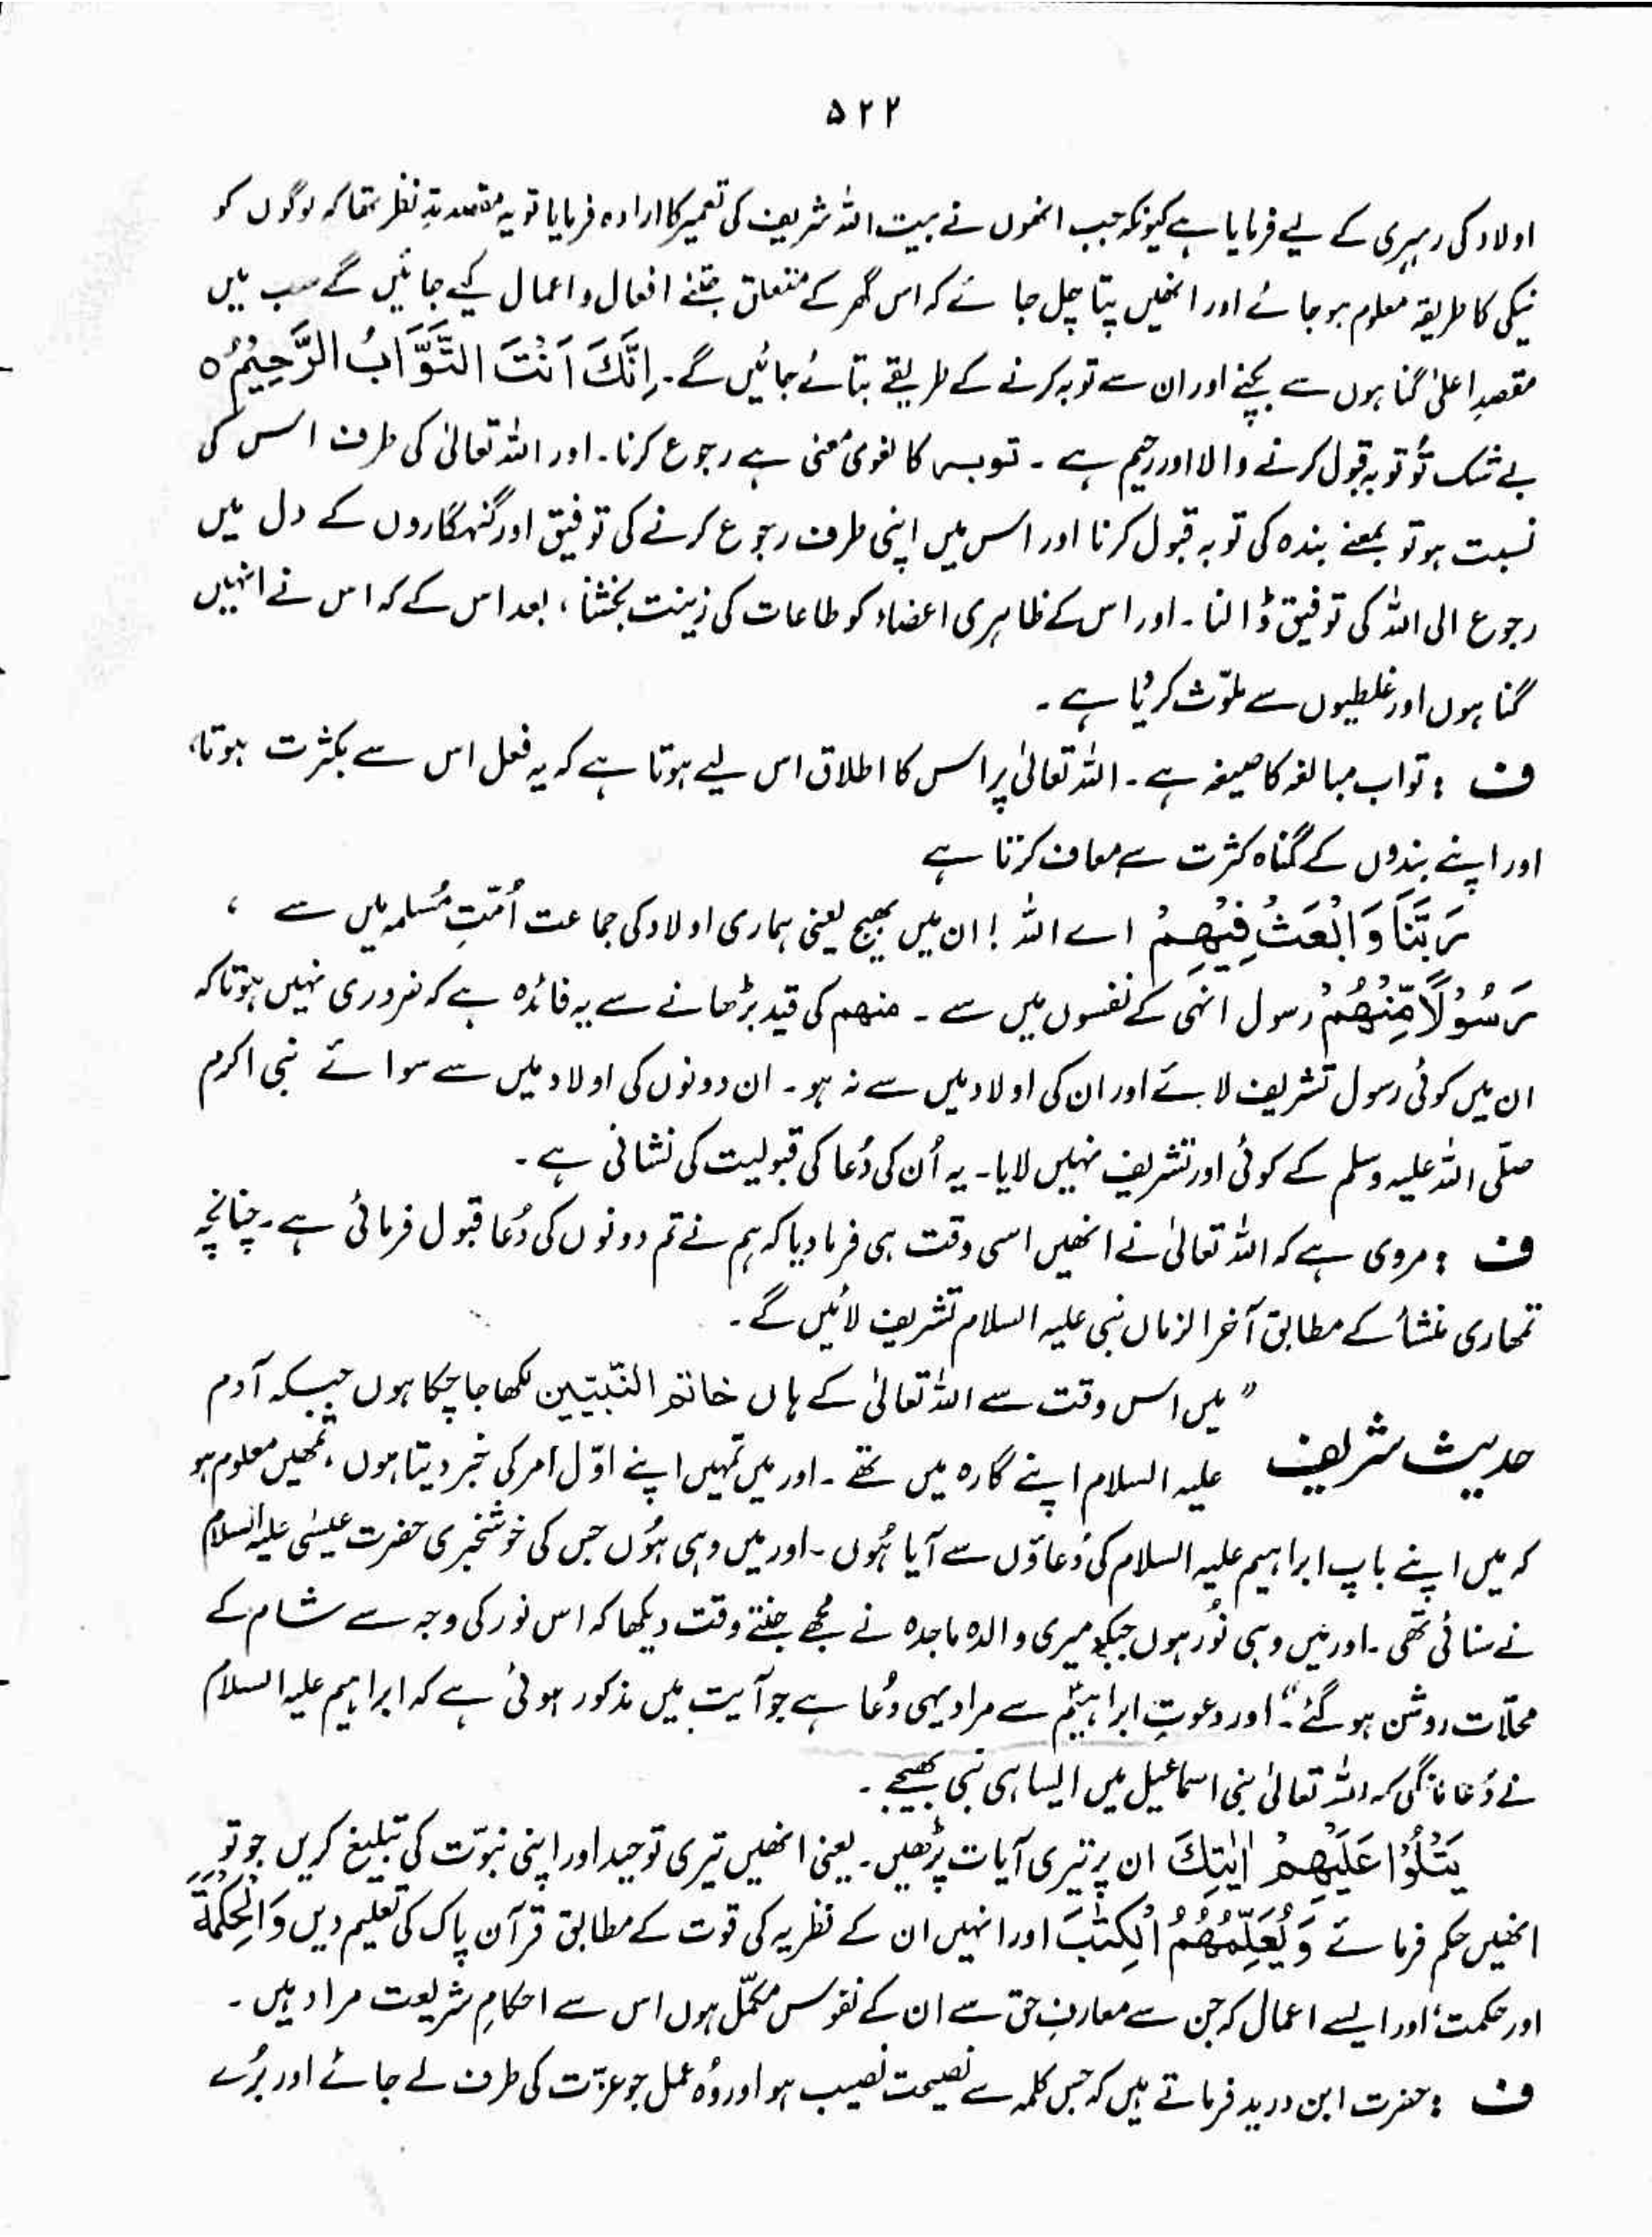 ۵۲۲
اولاد کی رہبری کے لیے فرمایا ہے کیونکہ جب انھوں نے بیت اللہ شریف کی تعمیر کا ارادہ فرمایا تو یہ مقصد مدِّ نظر تھا کہ لوگوں کو
نیکی کا طریقہ معلوم ہو جائے اور انھیں پتا چل جائے کہ اس گھر کے متعلق جتنے افعال و اعمال کیے جائیں گے سب میں
مقصدِ اعلیٰ گناہوں سے بچنے اور ان سے توبہ کرنے کے طریقے بتائے جائیں گے۔ اِنَّكَ اَنْتَ التَّوَّابُ الرَّحِيْمُ ہ
بے شک تُو توبہ قبول کرنے والا اور رحیم ہے ۔ توبہ کا لغوی معنی ہے رجوع کرنا ۔ اور اللہ تعالیٰ کی طرف اس کی
نسبت ہو تو بمعنے بندہ کی توبہ قبول کرنا اور اس میں اپنی طرف رجوع کرنے کی توفیق اور گنہگاروں کے دل میں
رجوع الی اللہ کی توفیق ڈالنا ۔ اور اس کے ظاہری اعضاء کو طاعات کی زینت بخشنا ، بعد اس کے کہ اس نے انہیں
گناہوں اور غلطیوں سے ملوّث کر دیا ہے ۔
ف : تواب مبالغہ کا صیغہ ہے ۔ اللہ تعالیٰ پر اس کا اطلاق اس لیے ہوتا ہے کہ یہ فعل اس سے بکثرت ہوتا
اور اپنے بندوں کے گناہ کثرت سے معاف کرتا ہے
رَبَّنَا وَابْعَثْ فِيْهِمْ اے اللہ ! ان میں بھیج یعنی ہماری اولاد کی جماعت اُمّتِ مُسلمہ میں سے ،
رَسُوْلًا مِّنْهُمْ رسول انہی کے نفسوں میں سے ۔ منھم کی قید بڑھانے سے یہ فائدہ ہے کہ ضروری نہیں ہوتا کہ
ان میں کوئی رسول تشریف لائے اور ان کی اولاد میں سے نہ ہو ۔ ان دونوں کی اولاد میں سے سوائے نبی اکرم
صلّی اللہ علیہ وسلم کے کوئی اور تشریف نہیں لایا ۔ یہ اُن کی دُعا کی قبولیت کی نشانی ہے ۔
ف : مروی ہے کہ اللہ تعالیٰ نے انھیں اسی وقت ہی فرما دیا کہ ہم نے تم دونوں کی دُعا قبول فرمائی ہے ۔ چنانچہ
تمھاری منشأ کے مطابق آخر الزماں نبی علیہ السلام تشریف لائیں گے ۔
حدیث شریف " میں اس وقت سے اللہ تعالیٰ کے ہاں خاتم النّبیّین لکھا جا چکا ہوں جبکہ آدم
علیہ السلام اپنے گارہ میں تھے ۔ اور میں تمہیں اپنے اوّل امر کی خبر دیتا ہوں ، تمھیں معلوم ہو
کہ میں اپنے باپ ابراہیم علیہ السلام کی دُعاؤں سے آیا ہُوں ۔ اور میں وہی ہُوں جس کی خوشخبری حضرت عیسٰی علیہ السلام
نے سنائی تھی ۔ اور میں وہی نُور ہوں جبکہ میری والدہ ماجدہ نے مجھے جنتے وقت دیکھا کہ اس نور کی وجہ سے شام کے
محلّات روشن ہو گئے ۔" اور دعوتِ ابراہیمؑ سے مراد یہی دُعا ہے جو آیت میں مذکور ہوئی ہے کہ ابراہیم علیہ السلام
نے دُعا مانگی کہ اللہ تعالیٰ بنی اسماعیل میں ایسا ہی نبی بھیجے ۔
يَتْلُوْا عَلَيْهِمْ اٰيٰتِكَ ان پر تیری آیات پڑھیں ۔ یعنی انھیں تیری توحید اور اپنی نبوّت کی تبلیغ کریں جو تو
انھیں حکم فرمائے وَيُعَلِّمُهُمُ الْكِتٰبَ اور انہیں ان کے نظریہ کی قوت کے مطابق قرآن پاک کی تعلیم دیں وَالْحِكْمَةَ
اور حکمت، اور ایسے اعمال کہ جن سے معارفِ حق سے ان کے نفوس مکمّل ہوں اس سے احکامِ شریعت مراد ہیں ۔
ف : حضرت ابن درید فرماتے ہیں کہ جس کلمہ سے نصیحت نصیب ہو اور وُہ عمل جو عزّت کی طرف لے جائے اور بُرے